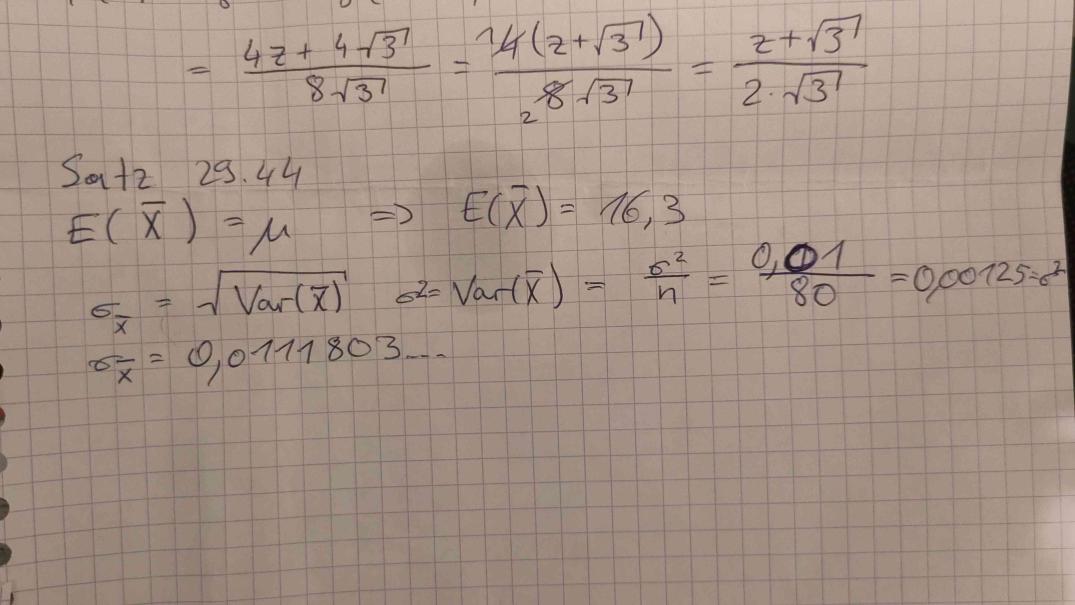 = (4z + 4√3)/(8√3) = (1 4(z + √3))/(2 8√3) = (z + √3)/(2 · √3)
Satz 29.44
E(X̄) = μ => E(X̄) = 16,3
σ_x̄ = √Var(x̄) σ² = Var(x̄) = σ²/n = 0,01/80 = 0,00125 = σ²
σ_x̄ = 0,0111803...